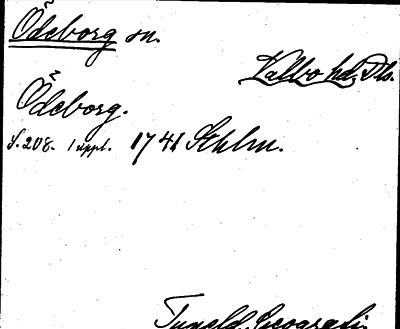 Ödeborg sn.
Valbo hd, Dls.
Ödeborg.
S. 208. 1 uppl. 1741 Sthlm.
Tuneld, Geografi